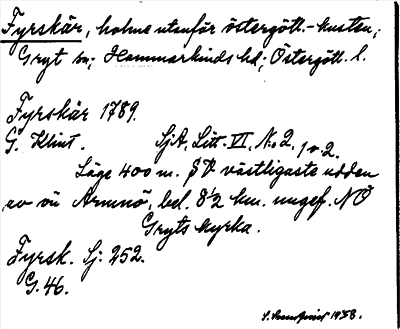 Fyrskär, holme utanför östergötl.-kusten,;
Gryt sn; Hammarkinds hd; Östergötl. l.
Fyrskär 1789.
G. Klint. SjA. Litt. VI, No 2, 1 o. 2.
Läge 400 m. SV västligaste udden
av ön Armnö, bel. 8 1/2 km. ungef. NO
Gryts kyrka.
Fyrsk. Sj. 252.
G. 46.
1958.